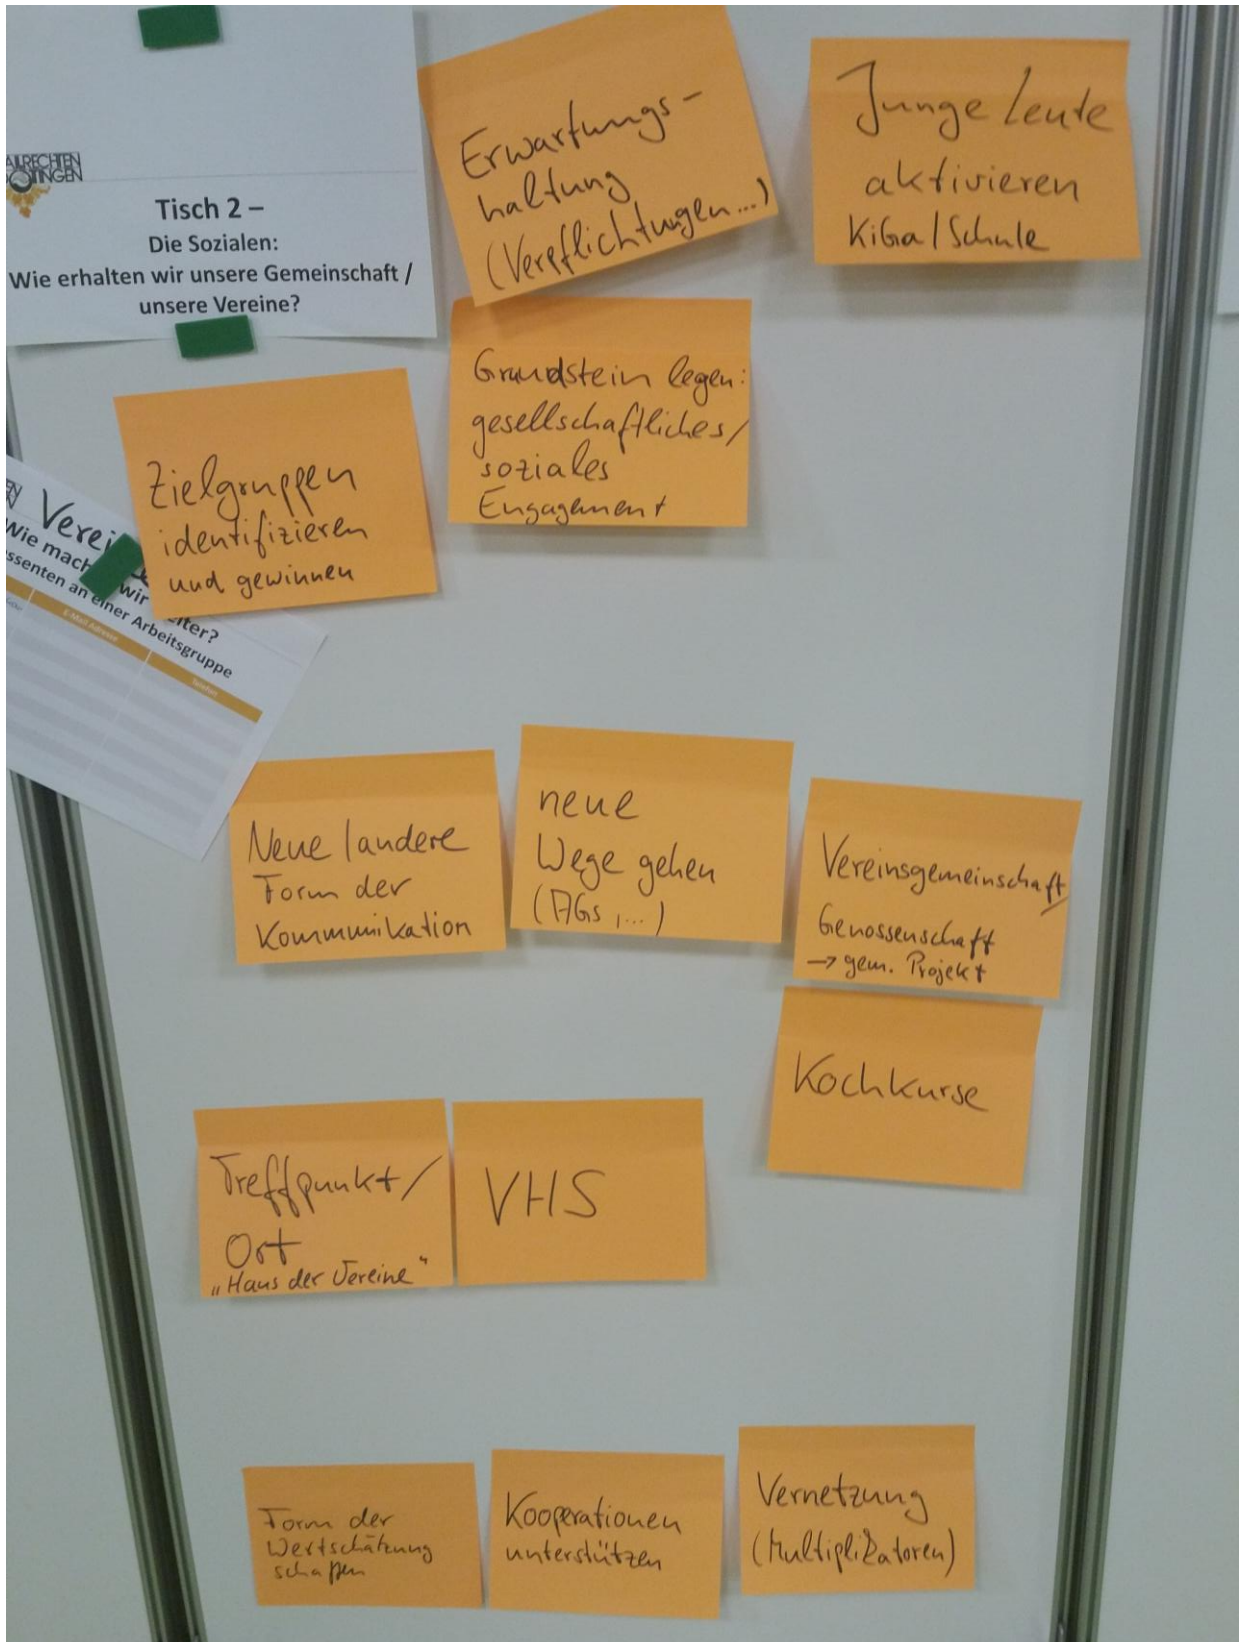 Tisch 2 –
Die Sozialen:
Wie erhalten wir unsere Gemeinschaft /
unsere Vereine?
Erwartungs-
haltung
(Verpflichtungen...)
Junge Leute
aktivieren
KiGa/Schule
Grundstein legen:
gesellschaftliches/
soziales
Engagement
Zielgruppen
identifizieren
und gewinnen
Verei
Wie mach wir iter?
ssenten an einer Arbeitsgruppe
E-Mail Adresse
Telefon
Neue/andere
Form der
Kommunikation
neue
Wege gehen
(AGs,...)
Vereinsgemeinschaft/
Genossenschaft
→ gem. Projekt
Kochkurse
Treffpunkt/
Ort
„Haus der Vereine“
VHS
Form der
Wertschätzung
schaffen
Kooperationen
unterstützen
Vernetzung
(Multiplikatoren)